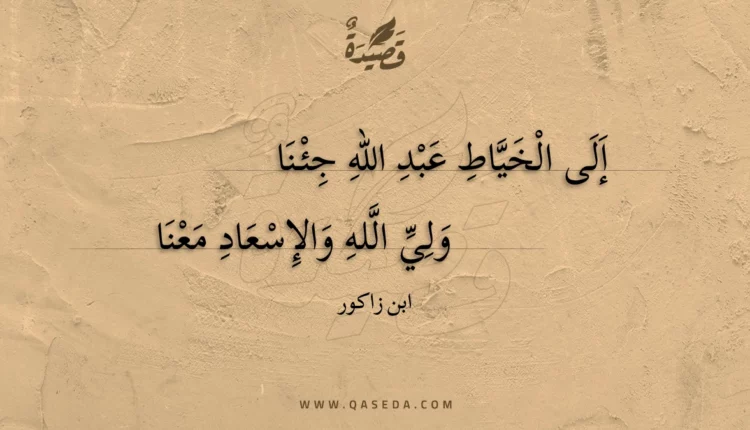 قَصِيدَةٌ
إَلَى الْخَيَّاطِ عَبْدِ اللهِ جِئْنَا
وَلِيِّ الَّلهِ وَالإِسْعَادِ مَعْنَا
ابن زاكور
WWW.QASEDA.COM